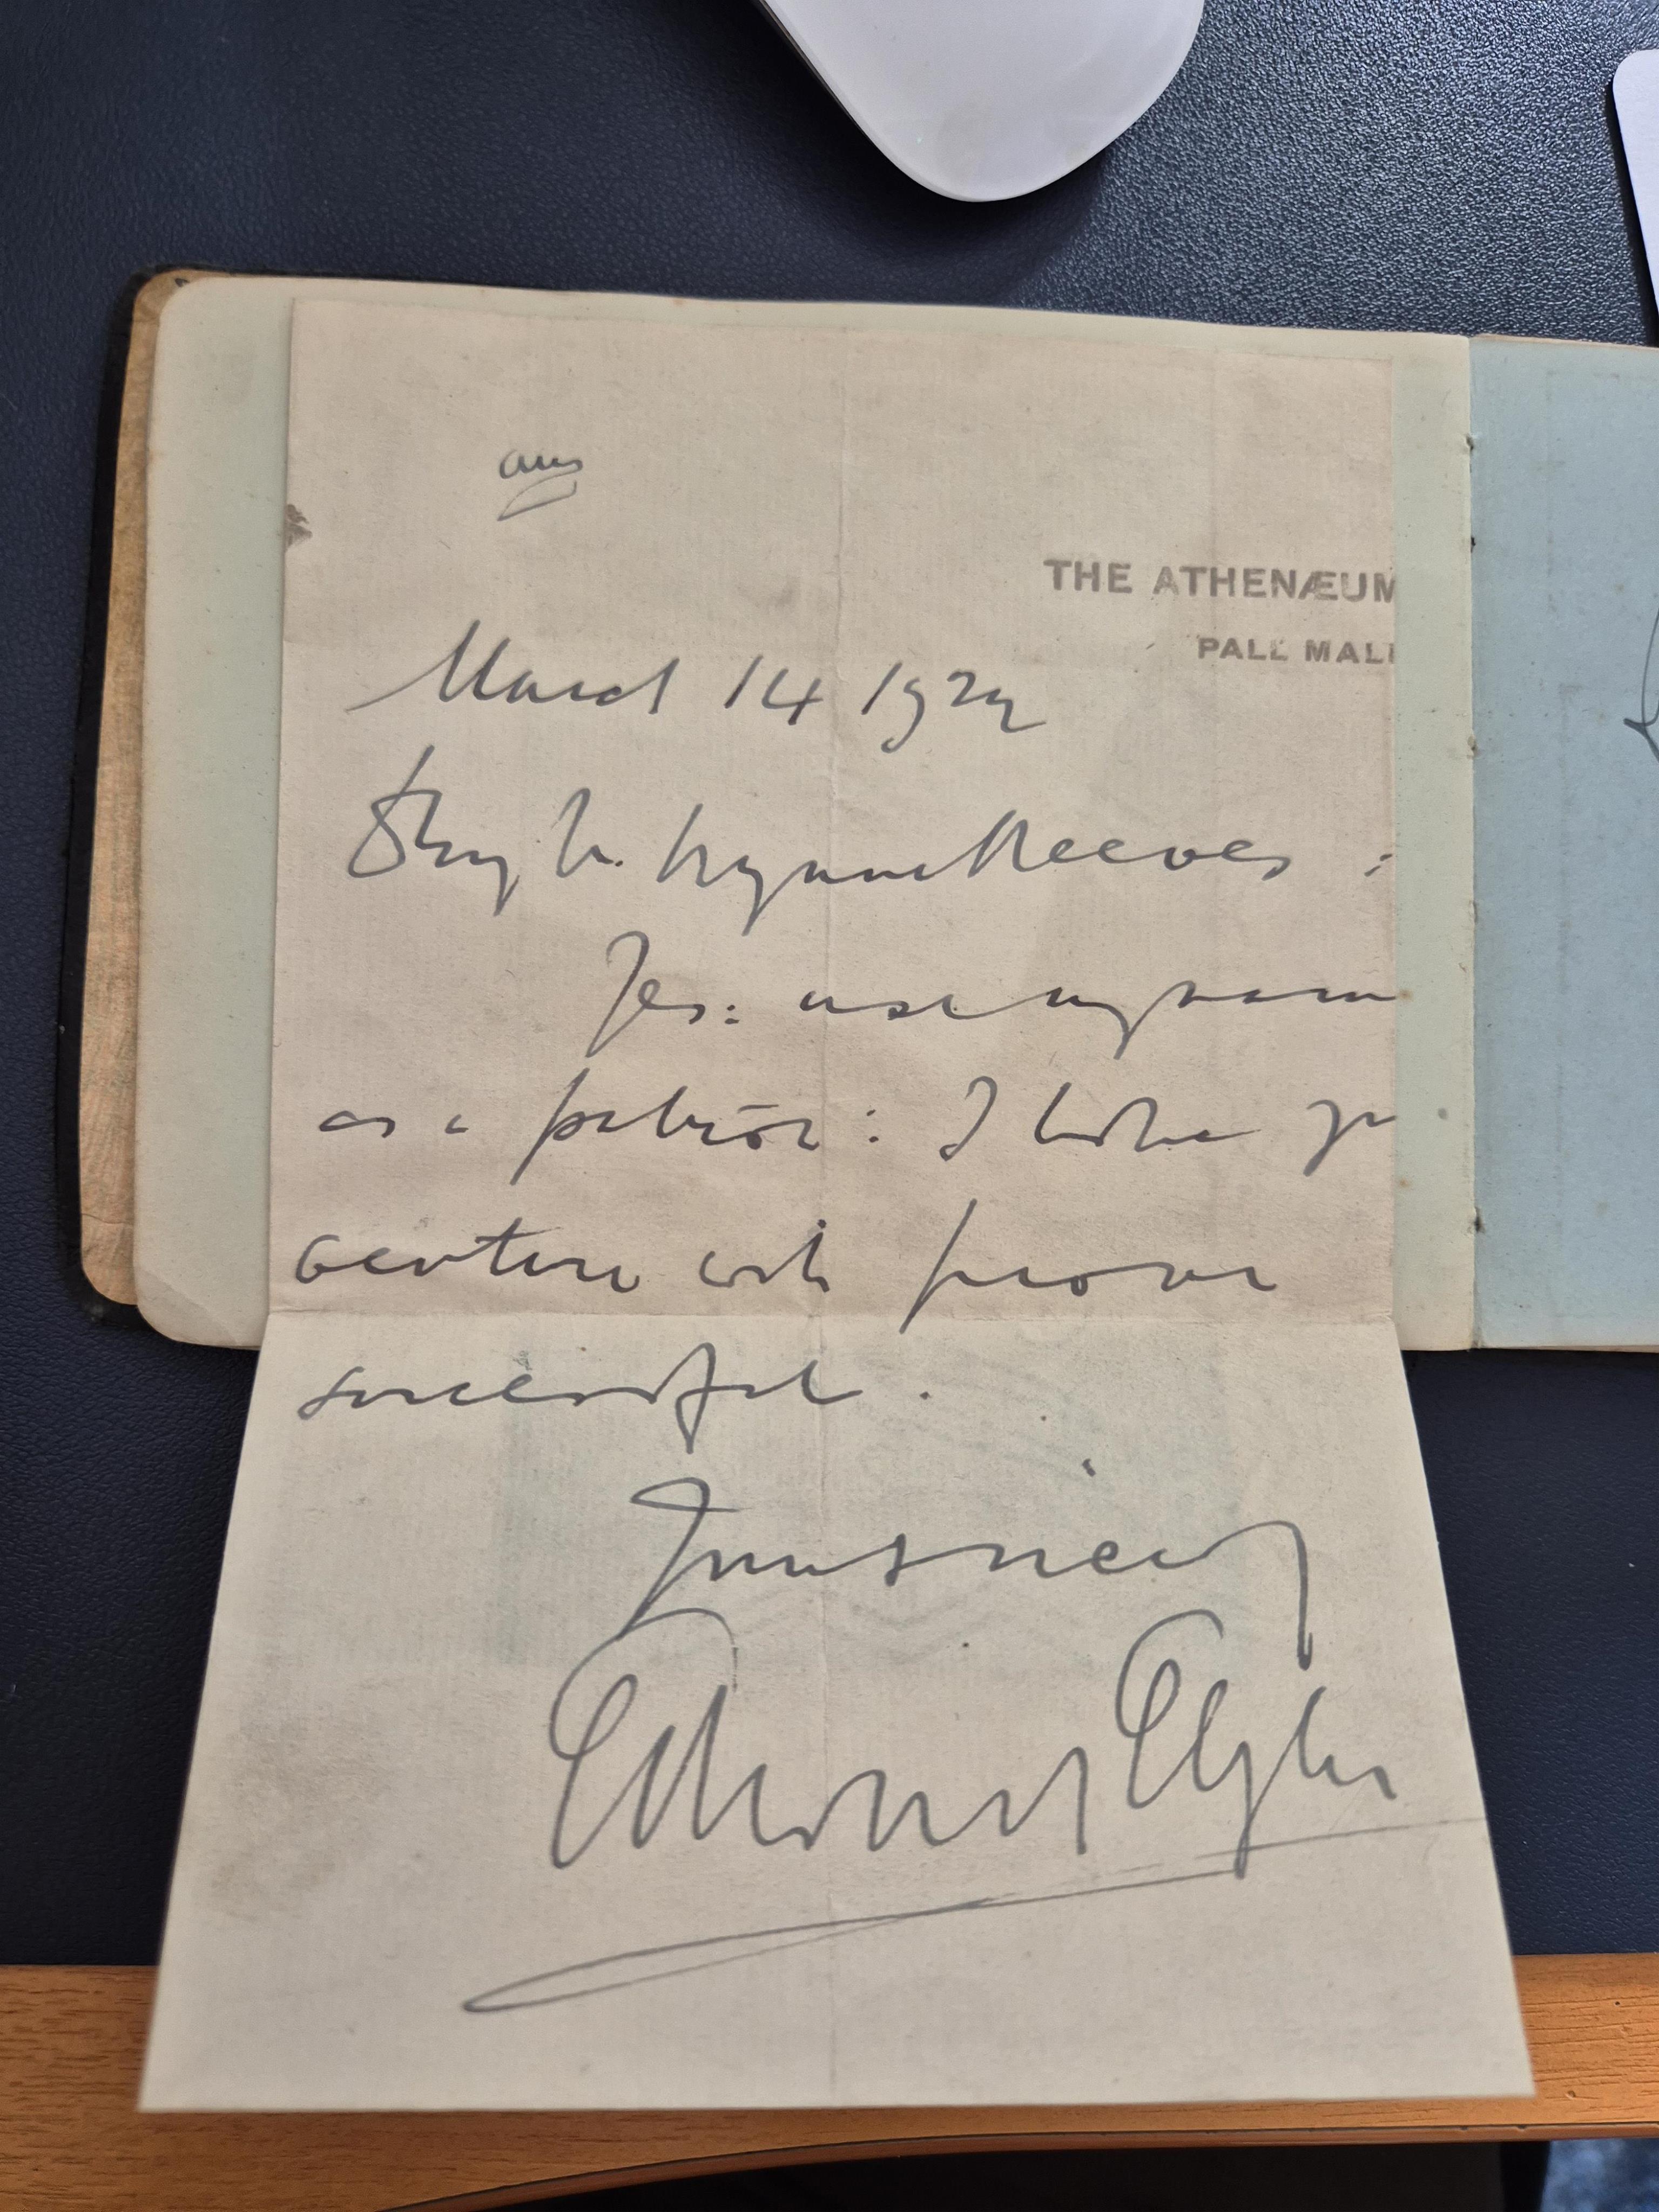 ans
THE ATHENÆUM
PALL MALL
March 14 1924
Dear Mr. Wynn Reeves:
Yes: use my name
as a patron: I hope yr
venture will prove
successful.
Yours sincy
Edward Elgar